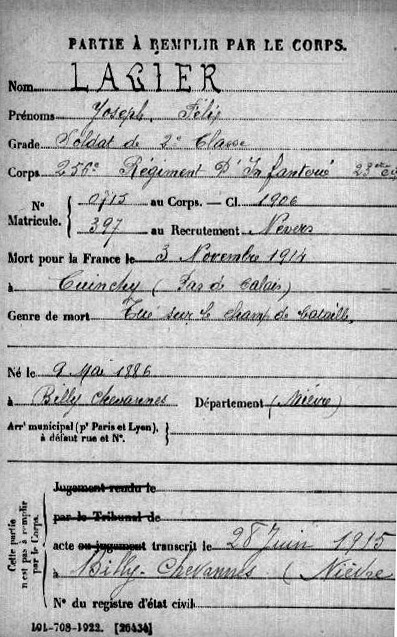 PARTIE À REMPLIR PAR LE CORPS.
Nom LAGIER
Prénoms Joseph, Félix
Grade Soldat de 2e Classe
Corps 256e Régiment d'Infanterie 23eme Cie
N° Matricule. { 0715 au Corps. — Cl. 1906
397 au Recrutement Nevers
Mort pour la France le 3 Novembre 1914
à Cuinchy (Pas de Calais)
Genre de mort Tué sur le champ de bataille
Né le 9 Mai 1886
à Billy Chevannes Département (Nièvre)
Arrt municipal (pr Paris et Lyon), à défaut rue et N°. }
Cette partie n'est pas à remplir par le Corps.
Jugement rendu le
par le Tribunal de
acte ou jugement transcrit le 28 Juin 1915
à Billy-Chevannes (Nièvre
N° du registre d'état civil
101-708-1922. [26434]